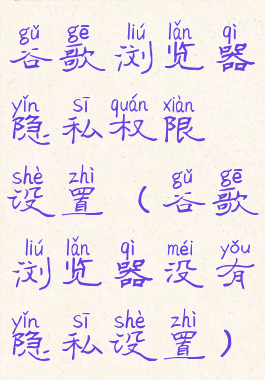 gǔ gē liú lǎn qì
谷歌浏览器
yǐn sī quán xiàn
隐私权限
shè zhì gǔ gē
设置（谷歌
liú lǎn qì méi yǒu
浏览器没有
yǐn sī shè zhì
隐私设置）